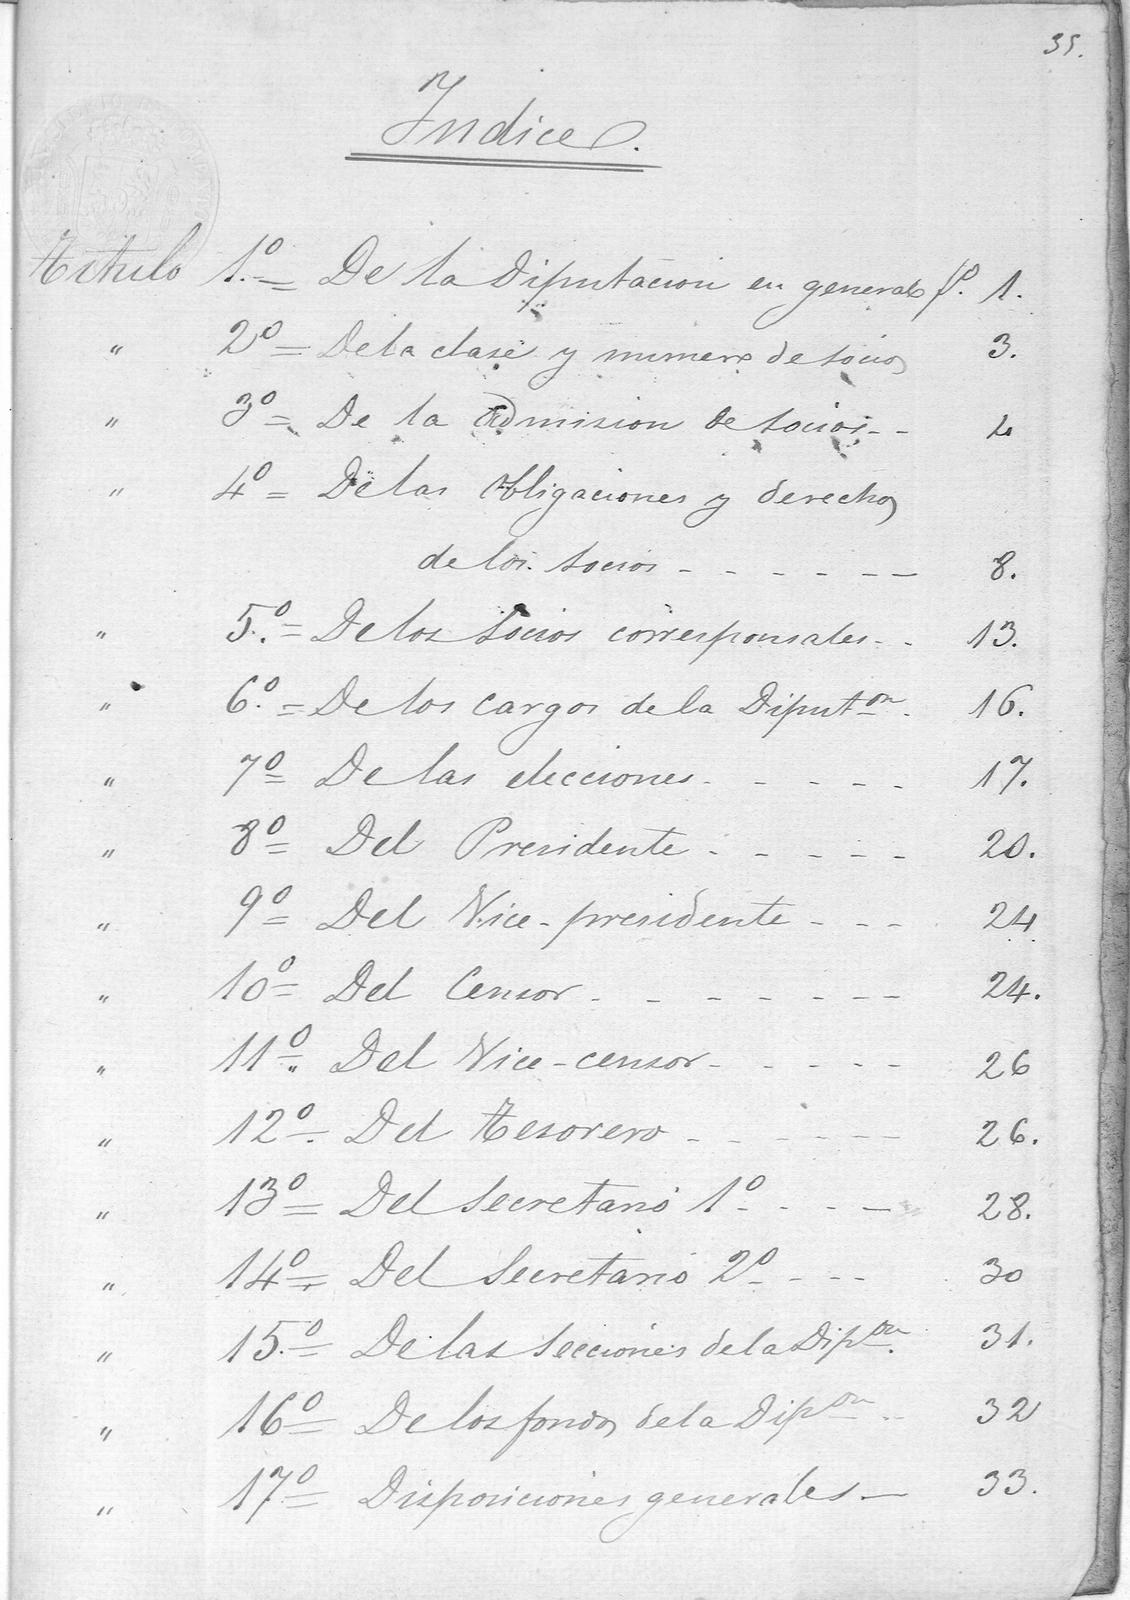 35.
Indice.
Titulo 1.º = De la Diputacion en general fº. 1.
" 2º = De la clase y numero de socios 3.
" 3º = De la admision de socios - -
" 4º = De las obligaciones y derechos
de los socios - - - - - - - 8.
" 5.º = De los socios corresponsales - - 13.
" 6.º = De los cargos de la Diputon. 16.
" 7º = De las elecciones - - - - - 17.
" 8º = Del Presidente - - - - - 20.
" 9º = Del Vice-presidente - - - 24
" 10º = Del Censor - - - - - - - 24.
" 11º = Del Vice-censor - - - - - 26
" 12º = Del Tesorero - - - - - - 26.
" 13º = Del Secretario 1º - - - - 28.
" 14º = Del Secretario 2º - - - 30
" 15.º = De las secciones de la Dipon. 31.
" 16º = De los fondos de la Dipon - - 32
" 17º = Disposiciones generales - 33.